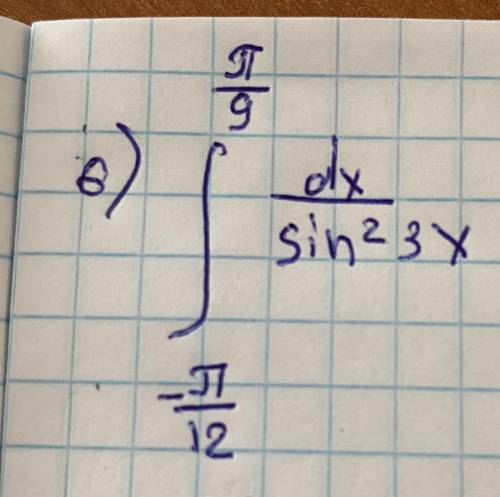 б) ∫_{-π/12}^{π/9} dx / sin² 3x